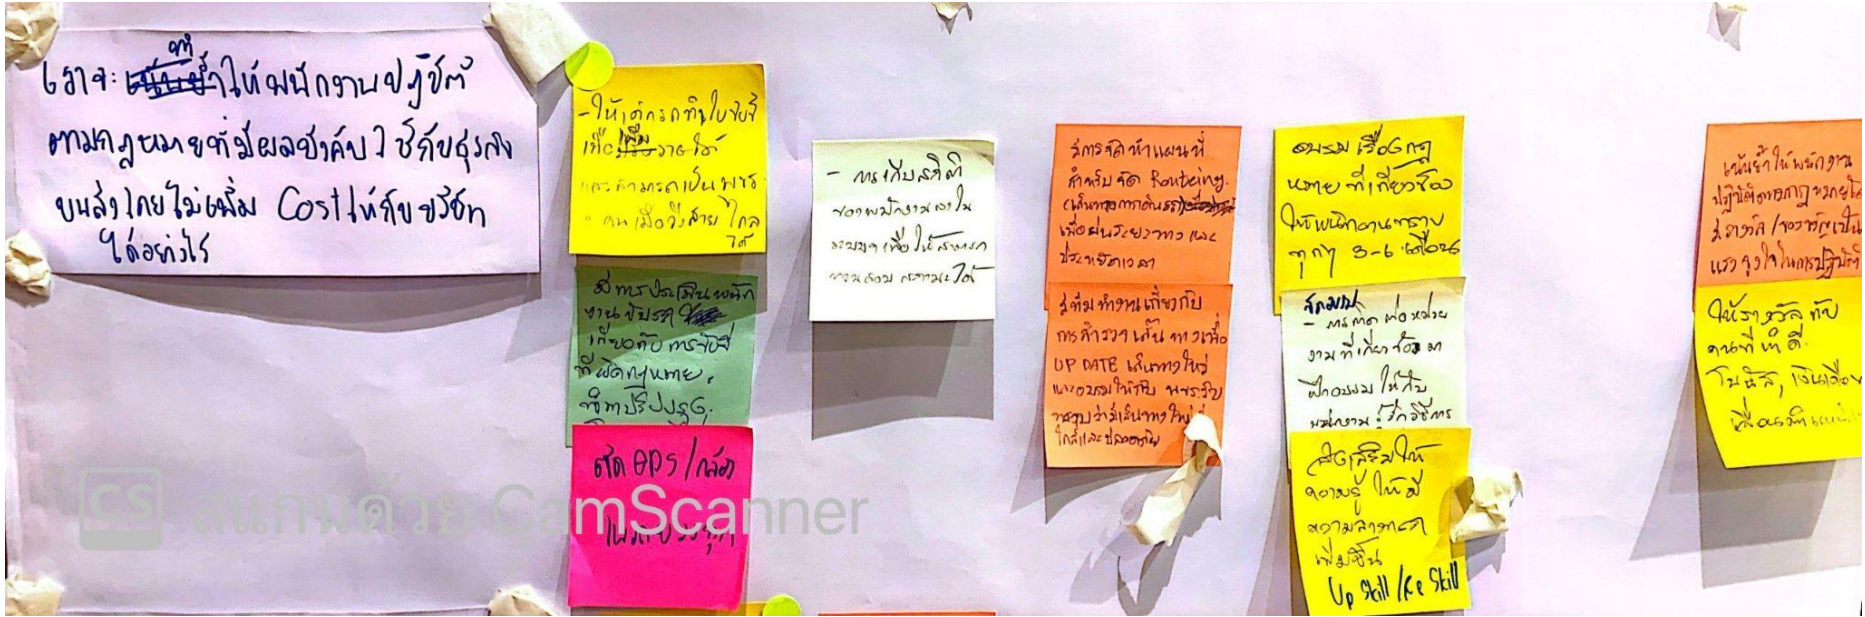 เราจะทำให้พนักงานปฏิบัติ
ตามกฎหมายที่มีผลบังคับใช้กับธุรกิจ
ขนส่งโดยไม่เพิ่ม Costให้กับบริษัท
ได้อย่างไร
- ให้
เพื่อเพิ่มรายได้
และสามารถเป็นพขร.
คนเมื่อวิ่งสายไกล
ได้
มีการประเมินพนัก
งานขับรถ
เกี่ยวกับการขับขี่
ที่ผิดกฎหมาย.
ติด GPS/กล้อง
- การเก็บสถิติ
ของพนักงานลงใน
ระบบฯ เพื่อให้สามารถ
ได้
มีการจัดทำแผนที่
สำหรับจัด Routeing.
(เส้นทางการเดินรถ)
เพื่อย่นระยะทางและ
ประหยัดเวลา
มีทีมทำงานเกี่ยวกับ
การสำรวจเส้นทางเพื่อ
UP DATE เส้นทางใหม่
และอบรมให้กับ พขร.รับ
ทราบว่ามีเส้นทางใหม่ที่
ใกล้และปลอดภัย
อบรมเรื่องกฎ
หมายที่เกี่ยวข้อง
ให้พนักงานทราบ
ทุกๆ 3-6 เดือน
- การติดต่อหน่วย
งานที่เกี่ยวข้องมา
ฝึกอบรมให้กับ
พนักงานรู้ถึงวิธีการ
ส่งเสริมให้
ความรู้ให้มี
ความสามารถ
เพิ่มขึ้น
Up Skill /Re Skill
เน้นย้ำให้พนักงาน
ปฏิบัติตามกฎหมายโดย
มีรางวัล/ของขวัญเป็น
แรงจูงใจในการปฏิบัติ
ให้รางวัลกับ
คนที่ทำดี.
โบนัส, เงินเดือน
สแกนด้วย CamScanner